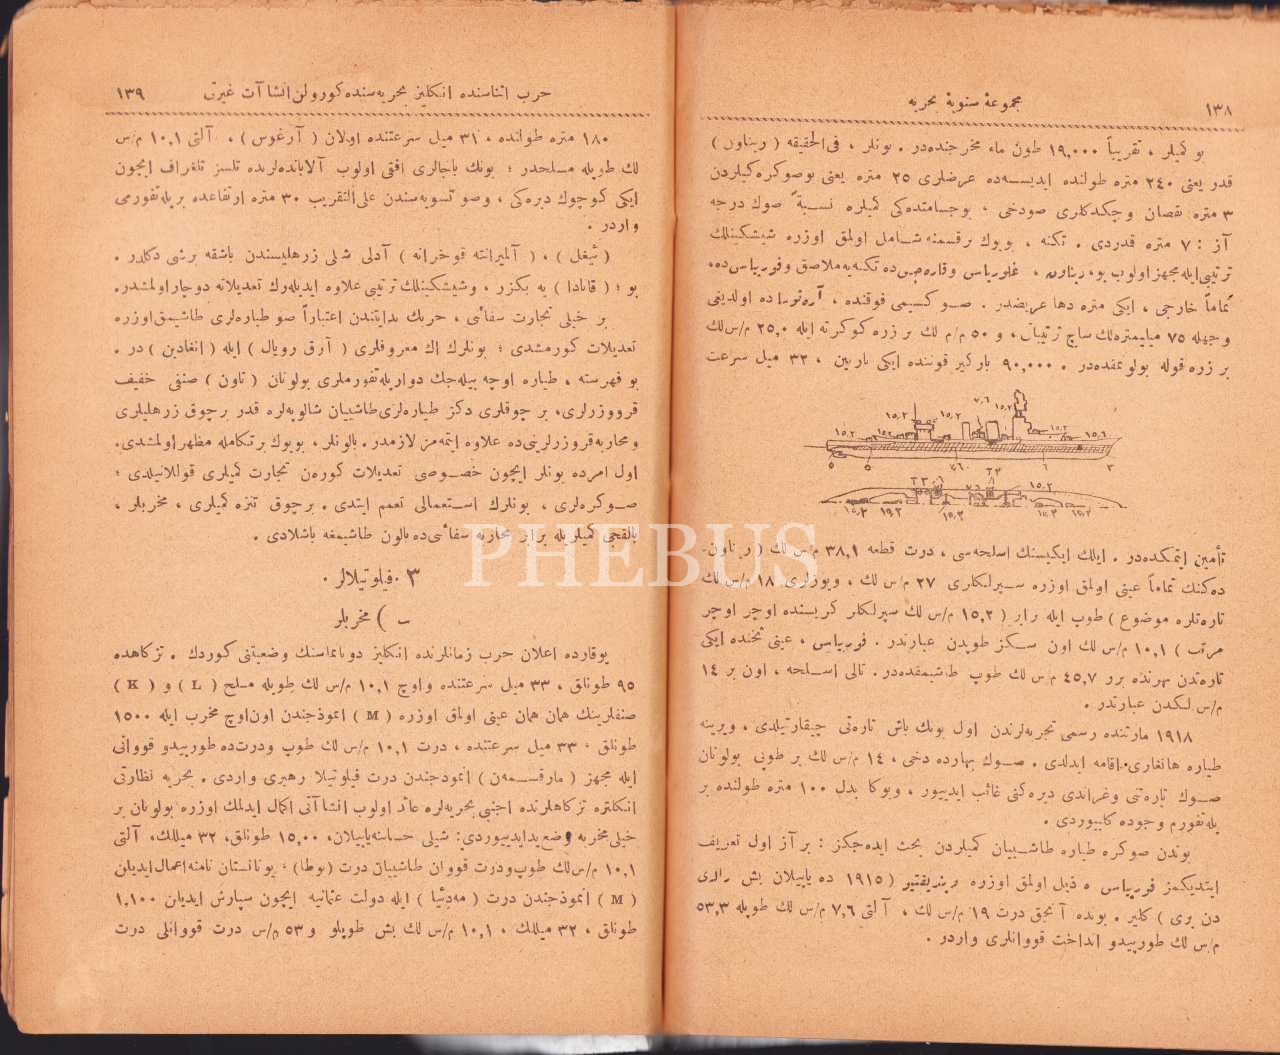 ١٣٨
مجموعهٔ سنویهٔ بحریه
بو كمیلر ، تقریباً ١٩,٠٠٠ طون ماء مخرجنده‌در . بونلر ، فی‌الحقیقه ( ریناون )
قدر یعنی ٢٤٠ متره طولنده ایدیسه‌ده عرضلری ٢٥ متره یعنی بوصوكره‌كیلردن
٣ متره نقصان وچكدكلری صودخی ، بوجسامتده‌كی كمیلره نسبةً صوك درجه
آز : ٧ متره قدردی . تكنه ، بویوك برقسمنه شامل اولمق اوزره شیشكینلك
ترتیبی‌ایله مجهز اولوب بو، ریناون ، غلوریاس وقاره‌جس‌ده تكنه‌یه ملاصق وفوریاس‌ده،
تماماً خارجی ، ایكی متره دها عریضدر .
وجهله ٧٥ میلیمتره‌لك ساچ ترتیبات ، و ٥٠ م/م لك بر زره كوكرته ایله ٢٥,٠ م/س‌لك
بر زره قوله بولونمقده‌در . ٩٠,٠٠٠ بارگیر قوتنده ایكی تاربین ، ٣٢ میل سرعت
٧,٦
١٥,٢
١٥,٢
١٥,٢
١٥,٢
١٥,٢
١٥,٦
تأمین ایتمكده‌در . ایلك ایكیسنك اسلحه‌سی ، درت قطعه ٣٨,١ م/س لك ( ریناون-
ده‌كنك تماماً عینی اولمق اوزره سیرلكلری ٢٧ م/س لك ، ویوزلری ١٨ م/س لك
تاره‌تلره موضوع ) طوپ ایله ( ١٥,٢ م/س لك سپرلكلر كریسنده اوچر اوچر
مرتب ) ١٠,١ م/س لك اون سكز طوپدن عبارتدر . فوریاس ، عینی تحتده ایكی
تاره‌تدن بهرنده برر ٤٥,٧ م/س لك طوپ طاشیمقده‌در. تالی اسلحه ، اون بر ١٤
م/س لكدن عبارتدر .
١٩١٨ مارتنده رسمی تجربه‌لرندن اول بونك باش تاره‌تی چیقارتیلدی ، ویرینه
طیاره هانغاری اقامه ایدلدی . صوك بهارده دخی ، ١٤ م/س لك بر طوپی بولونان
صوك تاره‌تی وغراندی دیره‌كنی غائب ایدییور ، وبوكا بدل ١٠٠ متره طولنده بر
پله‌تفورم وجوده كلییوردی .
بوندن صوكره طیاره طاشییان كمیلردن بحث ایده‌جكز : بر آز اول تعریف
ایتدیكمز فوریاس ه ذیل اولمق اوزره ( ١٩١٥ ده یاپیلان بش
دن بری ) كلیر . بونده آنجق درت ١٩ م/س لك ، آلتی ٧,٦ م/س لك طوپله ٥٣,٣
م/س لك طورپیدو انداخت قووانلری واردر .
١٣٩
حرب اثناسنده انكلیز بحریه‌سنده كورولن انشاآت غیرتی
١٨٠ متره طولنده ، ٣١ میل سرعتنده اولان ( آرغوس ) ، آلتی ١٠,١ م/س
لك طوپله مسلحدر ؛ بونك باجالری افقی اولوب آلابانده‌لرنده تلسز تلغراف ایچون
ایكی كوچوك دیره‌كی ، وصو تسویه‌سندن علی‌التقریب ٣٠ متره ارتفاعده بر پله‌تفورمی
واردر .
( ئیغل ) ، ( آلمیرانته قوخرانه ) آدلی شلی زرهلیسندن باشقه برشی دكلدر .
بو ؛ ( قانادا ) یه بكزر ، وشیشكینلك ترتیبی علاوه ایدیله‌رك تعدیلاته دوچار اولمشدر.
بر خیلی تجارت سفائنی ، حربك بدایتندن اعتباراً صو طیاره‌لری طاشیمق‌اوزره
تعدیلات كورمشدی ؛ بونلرك اك معروفلری ( آرق رویال ) ایله ( انغادین ) در .
بو فهرسته ، طیاره اوچه بیله‌جك دوار پله‌تفورملری بولونان ( تاون ) صنفی خفیف
قرووزرلری، بر چوقلری دكز طیاره‌لری طاشییان شالوپه‌لره قدر برچوق زرهلیلری
ومحاربه قروزرلرینی‌ده علاوه ایتمه‌مز لازمدر. بالونلر ، بویوك برتكامله مظهر اولمشدی.
اول امرده بونلر ایچون خصوصی تعدیلات كورەن تجارت كمیلری قوللانیلدی ؛
صوكره‌لری ، بونلرك استعمالی تعمم ایتدی . برچوق تنزه كمیلری ، مخربلر ،
بالقجی كمیلریله برابر محاربه سفائنی‌ده بالون طاشیمغه باشلادی .
٣ . فیلوتیلالر .
ـ ) مخربلر
یوقارده اعلان حرب زمانلرنده انكلیز دونانماسنك وضعیتنی كوردك . تزكاهده
٩٥ طونلق ، ٣٣ میل سرعتنده واوچ ١٠,١ م/س لك طوپله مسلح ( L ) و ( K )
صنفلرینك همان همان عینی اولمق اوزره ( M ) انموذجندن اون‌اوچ مخرب ایله ١٥٠٠
طونلق ، ٣٣ میل سرعتنده ، درت ١٠,١ م/س لك طوپ ودرت‌ده طورپیدو قووانی
ایله مجهز ( مارقسمه‌ن ) انموذجندن درت فیلوتیلا رهبری واردی . بحریه نظارتی
انكلتره تزكاهلرنده اجنبی بحریه‌لره عائد اولوب انشاآتی اكمال ایدلمك اوزره بولونان بر
خیلی مخربه وضع ید ایدییوردی: شیلی حسابنه یاپیلان، ١٥,٠٠ طونلق، ٣٢ میللك، آلتی
١٠,١ م/س‌لك طوپ‌ودرت قووان طاشییان درت (بوطا) ، یونانستان نامنه اعمال ایدیلن
( M ) انموذجندن درت ( مه‌دئیا ) ایله دولت عثمانیه ایچون سپارش ایدیلن ١,١٠٠
طونلق ، ٣٢ میللك ، ١٠,١ م/س لك بش طوپلو و ٥٣ م/س درت قووانلی درت
PHEBUS